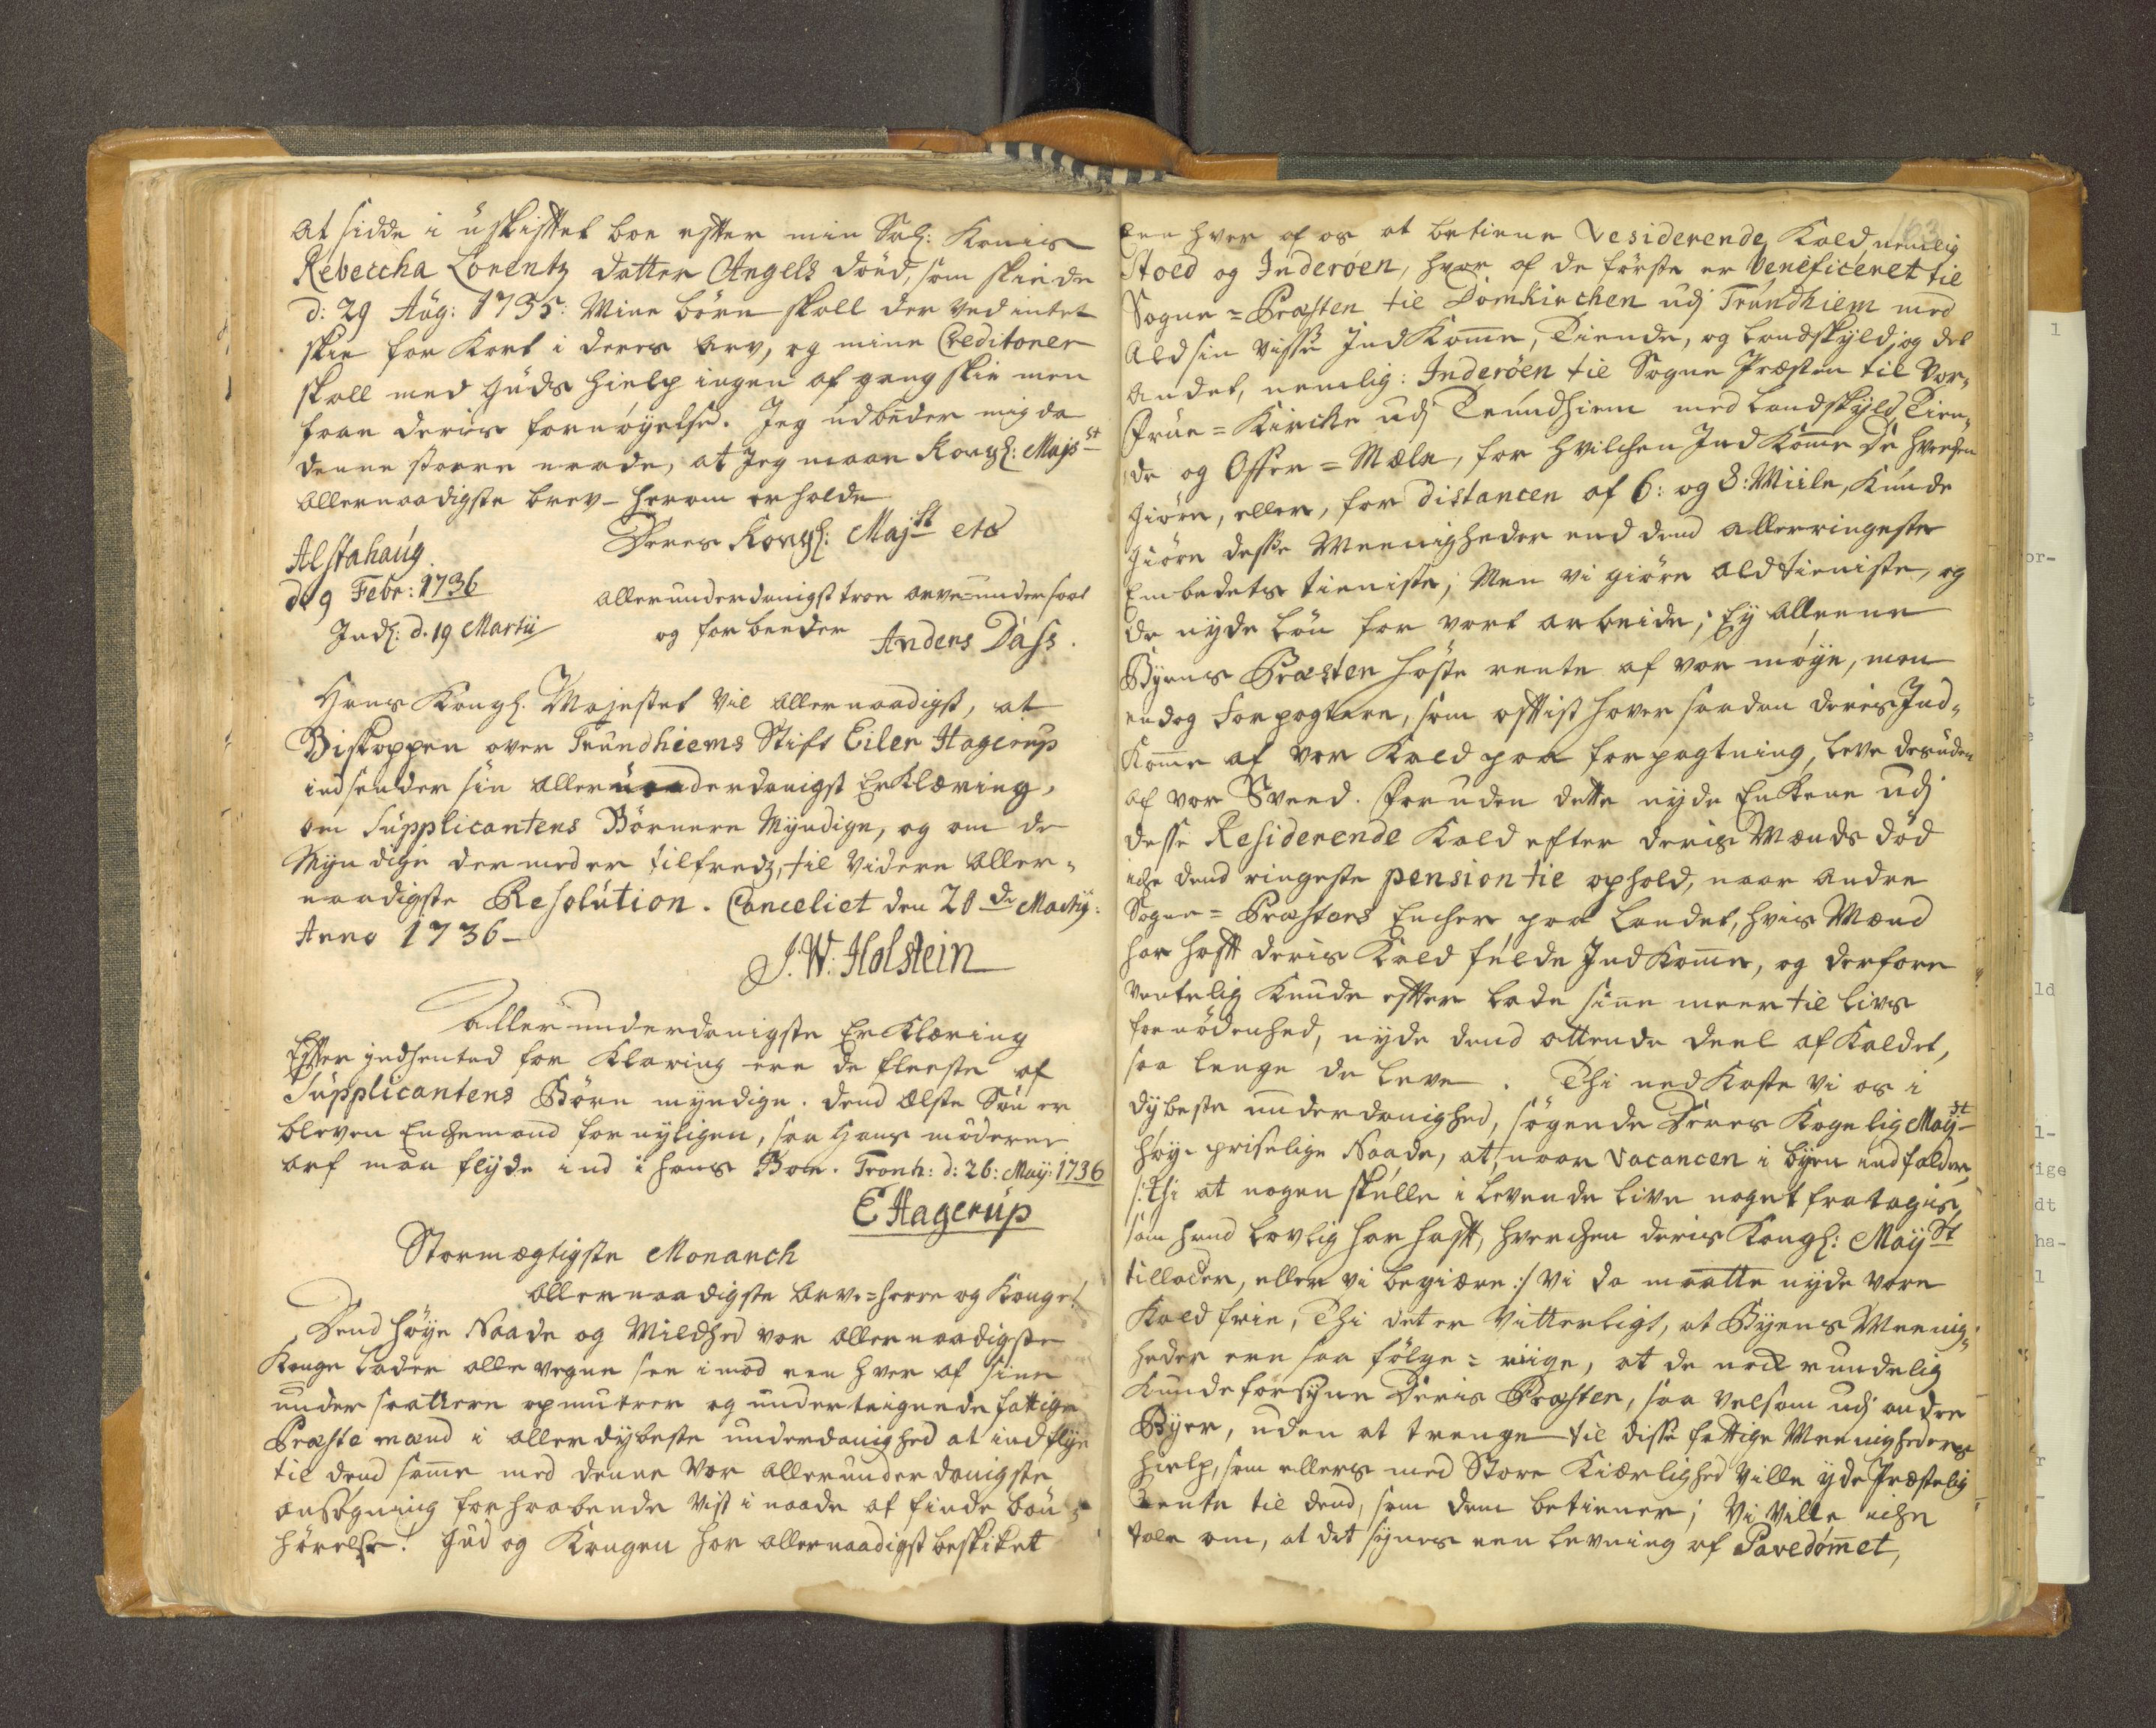 at sidde i uskifftet boe effter min Sal: Konis
Rebeccha Lorentz datter Angels död, som skeede
d: 29 Aug: 1735. Mine börn skall der ved intet
skee for kort i deres arv, og mine Creditorer
skall med Guds hielp ingen afgang skie men
faae deris fornöyelse. Jeg udbeder mig da
denne storre naade, at Jeg maae Kongl: Majsst
allernaadigste brev herom erholde
Deres Kongl: Majst etc
Alstahaug
d 9 Febr: 1736
allerunderdanigst troe arve=undersaat
Indl: d. 19 Martii
og forbeeder
Anders Dass.
Hans Kongl. Majestet vil allernaadigst, at
Biskoppen over Trundhiems Stift Eiler Hagerup
indsender sin allerunderdanigst Erklæring,
om Supplicantens Börn ere Myndige, og om de
Myndige dermed er tilfredz, til videre aller-
naadigste Resolution. Canceliet den 20de Martij:
Anno 1736
J. W. Holstein
Allerunderdanigste Erklæring
Effter indhented forklaring ere de fleeste af
Supplicantens Börn myndige. dend ælste Sön er
bleven Enchemand for nyligen, saa hans möderne
arf maa flyde ind i hans Boe. Tronh: d: 26: Maij: 1736
E Hagerup
Stormægtigste Monarch
allernaadigste arve=herre og Konge!
Dend höye Naade og Mildhed vor allernaadigste
Konge lader alle vegne see imod een hver af sine
undersaattere opmuntrer og undertegnede fattige
Præste mænd i allerdybeste underdanighed at indflye
til dend samme med denne vor allerunderdanigste
ansögning forhaabende vist i naade at finde bön-
hörelse! Gud og Kongen har allernaadigst beskiket
163
een hver af os at betiene Residerende Kald, nemlig
Stoed og Inderöen, hvor af de förste er beneficeret til
Sogne=Præsten til Domkirchen udj Trundhiem med
ald sin visse Jndkomme, Tiende, og Landskyld, og det
andet, nemlig: Inderöen til Sogne Præsten til Vor-
Frue=Kircke udj Trundhiem med Landskyld, Tien-
de og Offer=Mæle, for hvilchen Jndkomme de hverchen
giöre, eller, for distancen af 6: og 8: Miile, kunde
giöre desse Meenigheder end dend allerringeste
Embedets tieniste; Men vi giöre ald tieniste, og
de nyde lön for vort arbeide; Ey alleene
Byens Præsten höste rente af vor möye, men
endog Forpagtere, som offtist haver saadan deris Jnd-
komme af vor Kald paa forpagtning, leve desuden
af vor Sveed. Foruden dette nyde Enkene udj
desse Residerende Kald efter deris Mænds död
iche dend ringeste pension til ophold, naar andre
Sogne=Præsters Encher paa Landet, hvis Mænd
har hafft deris Kald fulde Jndkomme, og derfore
ventelig kunde effter lade sine meer til livs
fornödenhed, nyde dend ottende deel af Kaldet,
saa lenge de leve. Thi nedkaste vi os i
dybeste underdanighed, sögende Deres Kongelig Mayst
höy-priselige Naade, at, naar Vacancen i byen indfalder,
/: thi at nogen skulle i levende live noget fratagis,
som hand lovlig har hafft, hverchen deris Kongl: Mayst
tillader, eller vi begiære :/ vi da maatte nyde vore
Kald frie, Thi det er vitterligt, at Byens Meenig-
heder ere saa fölge=riige, at de nock rundelig
kunde forsyne Deris Præster, saa velsom udj andre
Byer, uden at trenge til disse fattige Meenigheders
hielp, som ellers med Store Kiærlighed ville yde Præstelig
Rente til dend, som dem betiener; Vi ville iche
tale om, at det synes een levning af Pavedömmet,